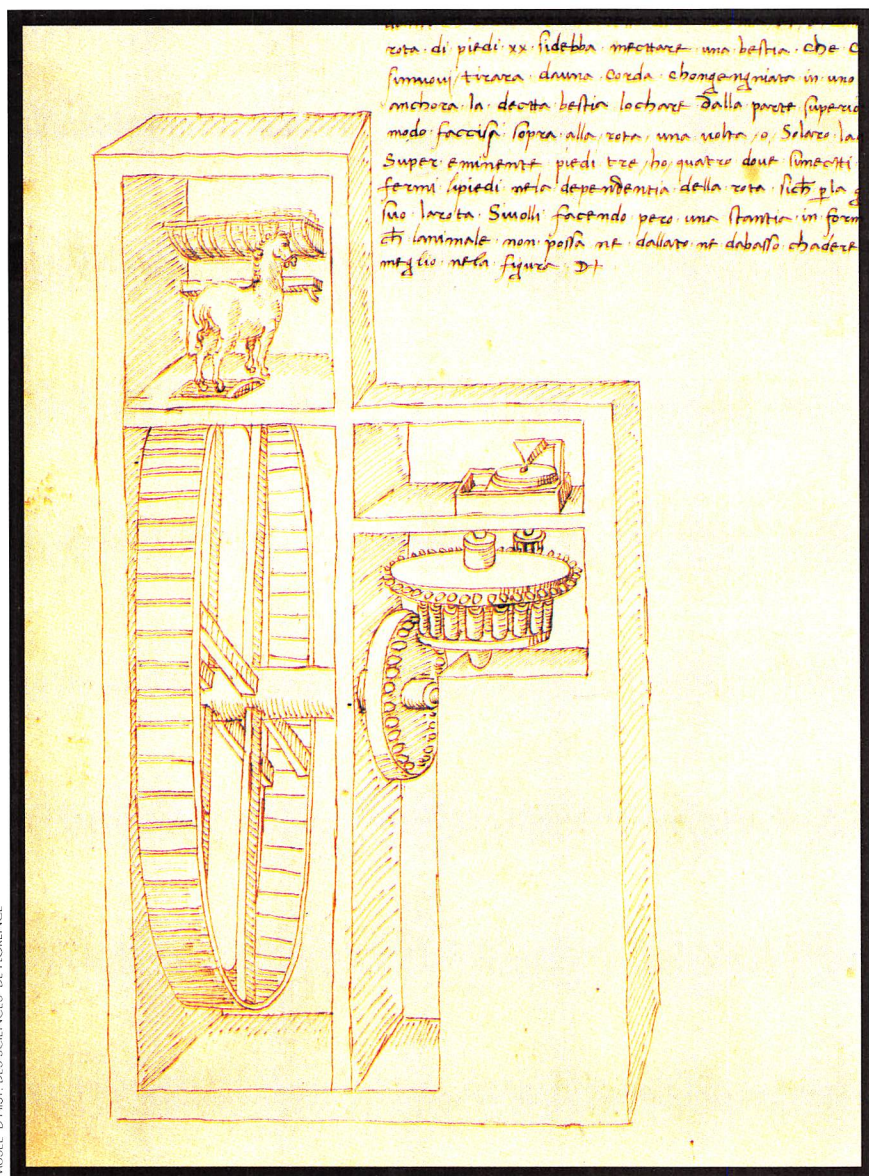 rota · di piedi · xx · sidebba · mecttare · una bestia · che
simuovi / tirara · dauna · corda · chongengniata in · uno
anchora · la · dectta bestia lochare dalla parte superio
modo · faccisi sopra · alla · rota / una uolta / o / Solaro · la
Super · eminente piedi tre / ho / quatro doue simectti
fermi · lipiedi nela · dependentia · della · rota · sich p la g
suo · larota · Siuolli · facendo pero · una stantia · in · form
ch lanimale · non · possa ne · dallato · ne dabasso · chadere
meglio · nela · figura · D+
MUSÉE D'HIST. DES SCIENCES DE FLORENCE